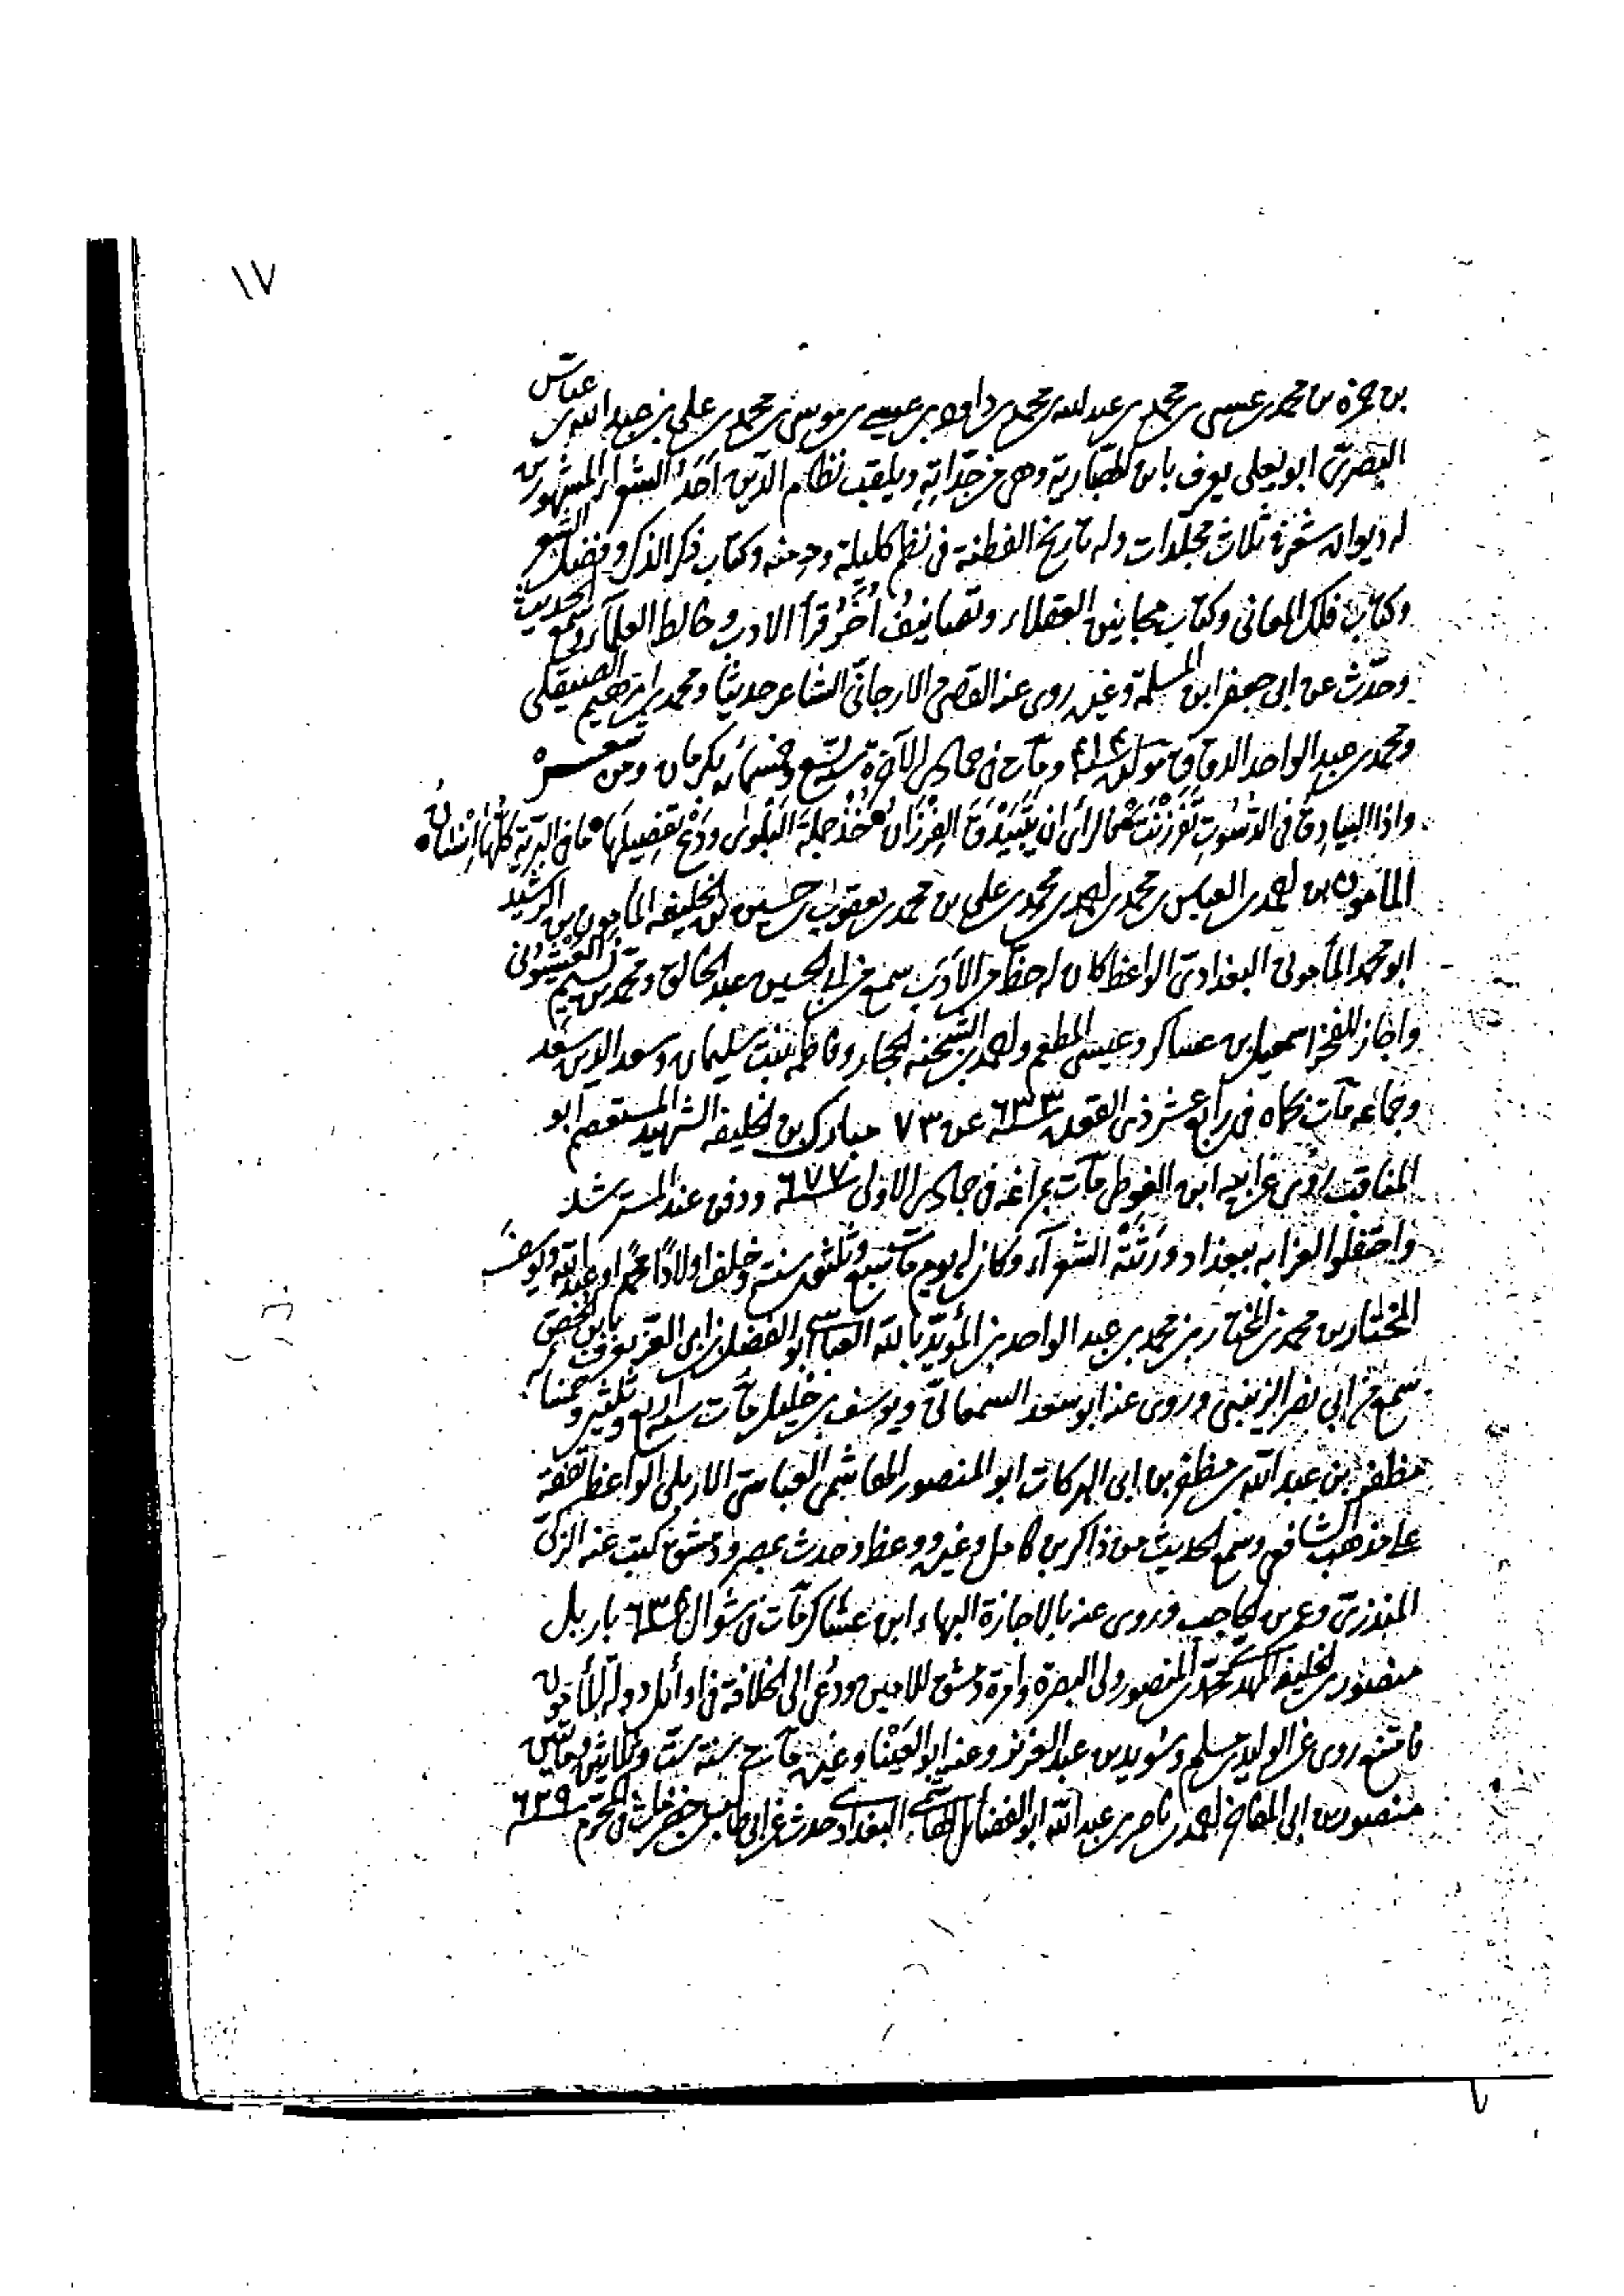 ١٧
بن حمزة بن محمد بن عيسى بن محمد بن عبد الله بن محمد بن داود بن عيسى بن موسى بن محمد بن علي بن عبد الله بن عباس
البصري ابو يعلى يعرف بابن الهبارية وهي من جداته ويلقب نظام الدين احد الشعراء المشهورين
له ديوان شعره ثلاث مجلدات وله تاريخ الفطنة في نظم كليلة ودمنه وكتاب ذكر الذكر وفضل الشعر
وكتاب فلك المعاني وكتاب مجانين العقلاء وتصانيف أخر قرأ الادب وخالط العلمآء وسمع الحديث
وحدث عن ابي جعفر ابن المسلمة وغيره روى عنه القاضي الارجاني الشاعر حديثا ومحمد بن ابرهيم الصيقلي
ومحمد بن عبد الواحد الدقاق مولده ٤١٤ ومات في جمادى الآخرة سنة تسع وخمسمائه بكرمان ومن شعره
واذا البيادق في الدسوت تفرزنت فالرأي ان يتبيذق الفرزان • خذ جملة البلوى ودع تفصيلها • ما في البرية كلها انسان •
المأمون بن احمد بن العباس بن محمد بن احمد بن محمد بن علي بن محمد بن يعقوب بن حسين بن الخليفه المأمون بن الرشيد
ابو محمد المأموني البغدادي الواعظ كان له حظ من الأدب سمع من ابي الحسين عبد الحالق ومحمد بن نسيم العيشوني
واجاز للفخر اسمعيل بن عساكر وعيسى المطعم واحمد بن الشحنه الحجار وفاطمه بنت سليمان وسعد الدين سعد
وجماعه مات بحماه في رابع عشر ذي القعدة ٦٣٣ عن ٧٣ مبارك بن الخليفه الشهيد المستعصم ابو
المناقب روى عن ابيه ابن الفوطي مات بمراغه في جمادى الاولى ٦٧٧ ودفن عند المسترشد
واحتفلوا لعزا به ببغداد ورثته الشعرآء وكان له يوم مات سبع وثلثون سنة وخلف اولادا محمدا وعبد الله ويوسف
المختار بن محمد بن المختار بن محمد بن عبد الواحد بن المؤيد بالله العباسي ابو الفضل بن ابي العز يعرف بابن الخص
سمع من ابي نصر الزينبي وروى عنه ابو سعد السمعاني ويوسف بن خليل مات سنة اربع وثلثين وخمسمائه
مظفر بن عبد الله بن مظفر بن ابي البركات ابو المنصور الهاشمي العباسي الاربلي الواعظ تفقه
على مذهب الشافعي وسمع الحديث من ذاكر بن كامل وغيره ووعظ وحدث بمصر ودمشق كتب عنه الزكي
المنذري وعمر بن الحاجب وروى عنه بالاجازة البهاء ابن عساكر مات في شوال ٦٣٤ باربل
منصور بن الخليفه المهدي محمد بن المنصور ولي البصرة وامرة دمشق للامين ودعي الى الخلافة في اوائل دولة المأمون
فامتنع روى عن الوليد بن مسلم وسويد بن عبد العزيز وعنه ابو العينا وغيره مات سنة ست وثلاثين ومأتين
منصور بن ابي المفاخر احمد بن ناصر بن عبد الله ابو الفضائل الهاشمي البغدادي حدث عن ابي طالب بن خضير مات في المحرم ٦٣٩